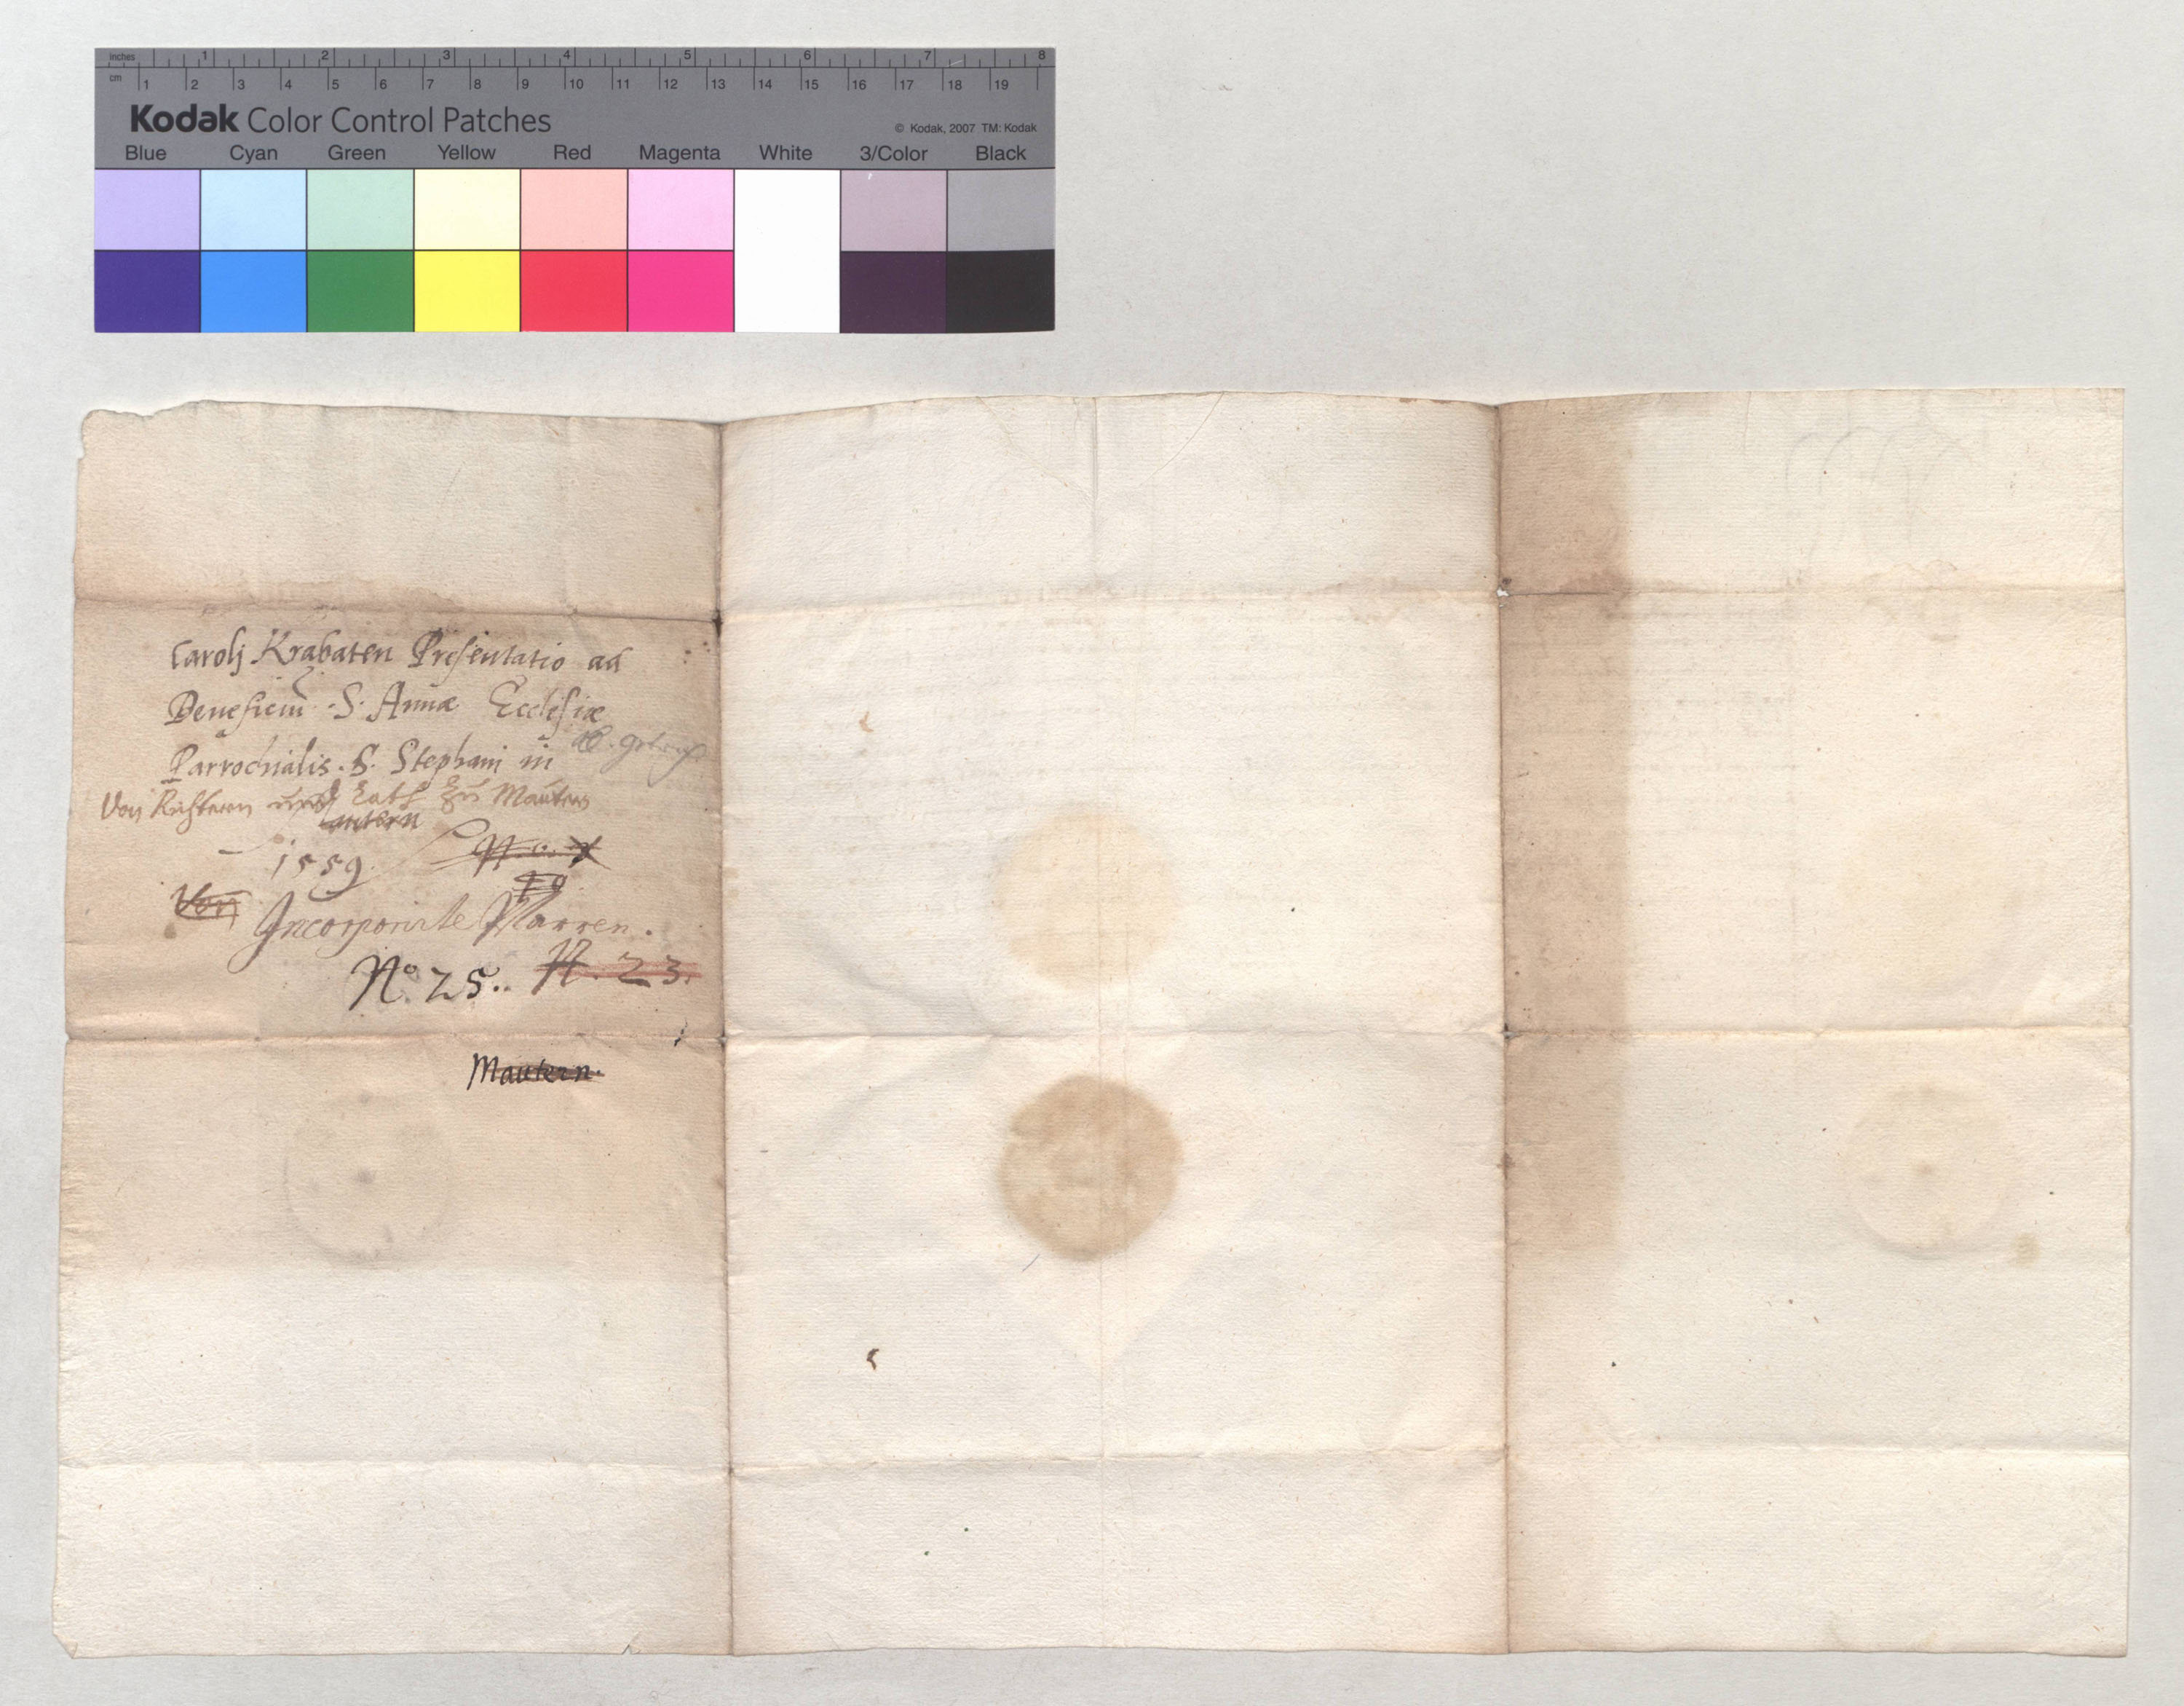 inches 1 2 3 4 5 6 7 8
cm 1 2 3 4 5 6 7 8 9 10 11 12 13 14 15 16 17 18 19
Kodak Color Control Patches
© Kodak, 2007 TM: Kodak
Blue Cyan Green Yellow Red Magenta White 3/Color Black
Carolj Krabaten Presentatio ad
Beneficiũ .S. Annæ Ecclesiæ
Parrochialis .S. Stephani in
Von Richtern und Rath zu Mautern
autern
1559.
Von
Incorporirte Pfarren.
N.º 25.. N. 23.
Mautern.